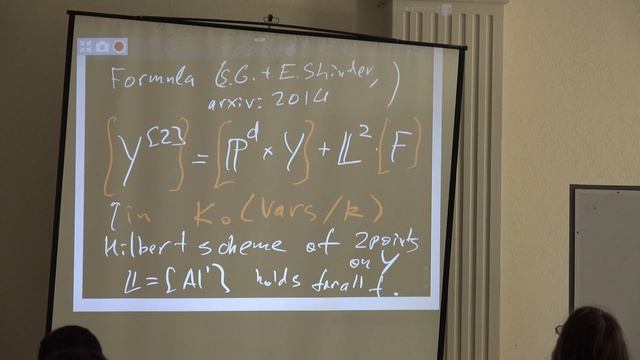 Formula (S.G. + E. Shinder,
arxiv: 2014 )
[Y^[2]] = [P^d × Y] + L^2 · [F]
↑ in K_0(Vars/k)
Hilbert scheme of 2 points
on Y
L = [A^1] holds for all f.